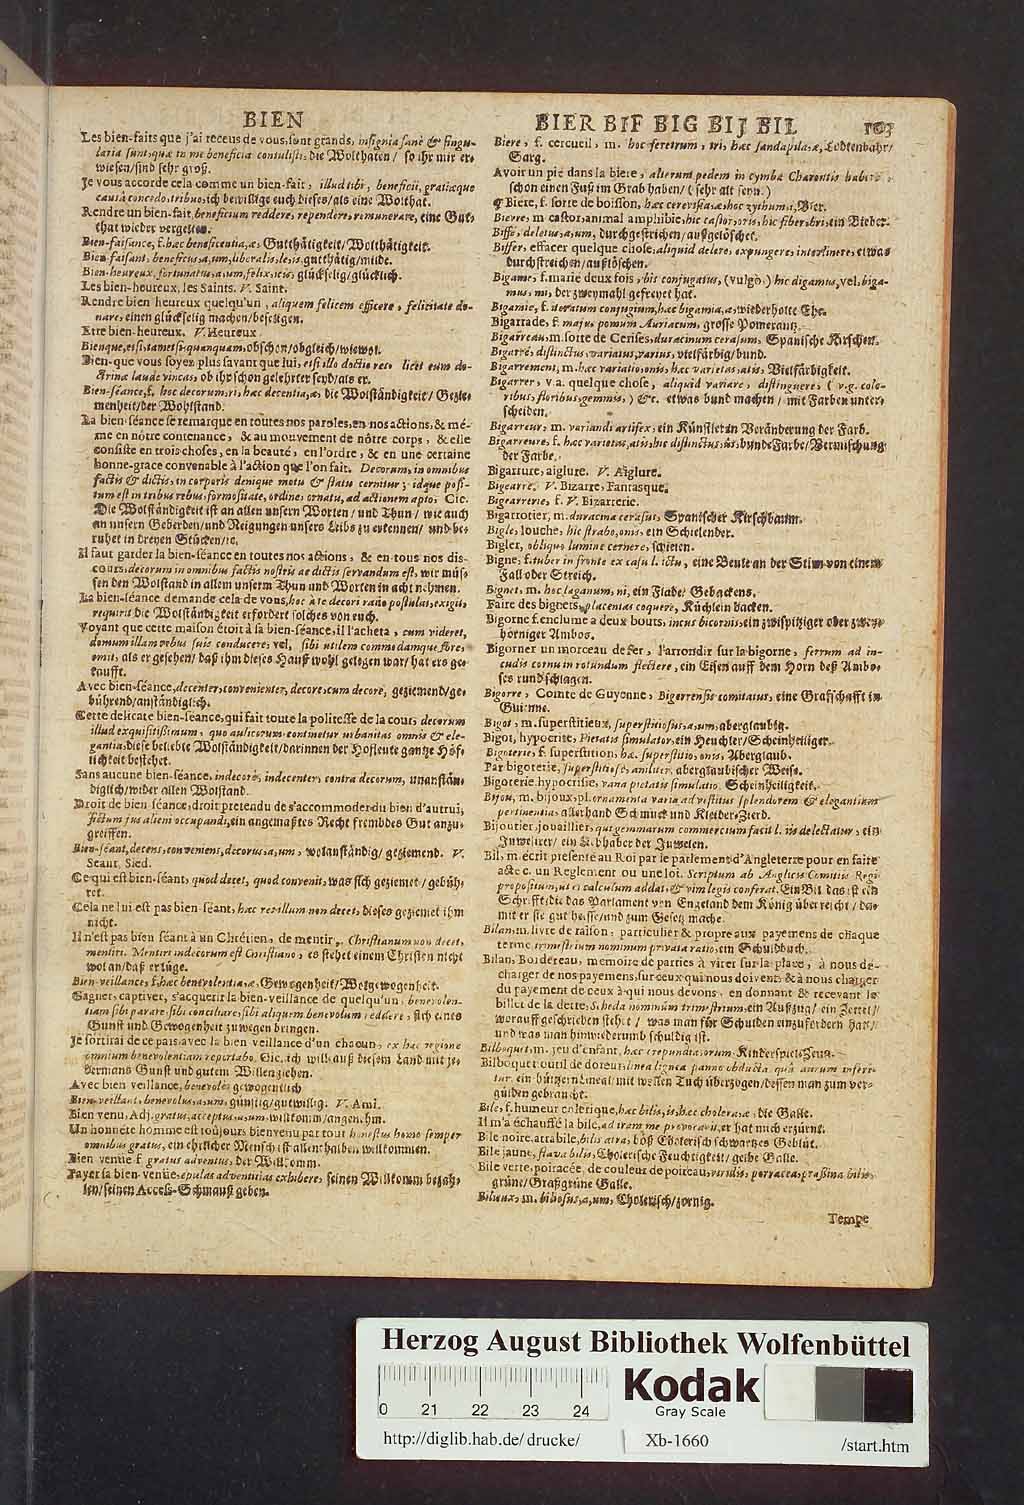 BIEN
Les bien-faits que j'ai receus de vous, sont grands, insignia sanè & singu-
laria sunt, quæ in me beneficia contulisti, die Wolthaten/ so ihr mir er-
wiesen/sind sehr groß.
Je vous accorde cela comme un bien-fait, illud tibi, beneficii, gratiæque
causâ concedo, tribuo, ich bewillige euch dieses/als eine Wolthat.
Rendre un bien-fait, beneficium reddere, rependere, remunerare, eine Gut-
that wieder vergelten.
Bien-faisance, f. hæc beneficentia, æ, Gutthätigkeit/Wolthätigkeit.
Bien-faisant, beneficus, a, um, liberalis, le, is, gutthätig/milde.
Bien-heureux, fortunatus, a, um, felix, icis, glückselig/glücklich.
Les bien-heureux, les Saints. V. Saint.
Rendre bien heureux quelqu'un, aliquem felicem efficere, felicitate do-
nare, einen glückselig machen/beseligen.
Etre bien-heureux. V. Heureux.
Bienque, etsi, tametsi, quanquam, obschon/obgleich/wiewol.
Bien-que vous soyez plus savant que lui, etsi illo doctis res, licet eum do-
ctrinæ laude vincas, ob ihr schon gelehrter seyd/als er.
Bien-séance, f. hoc decorum, ri, hæc decentia, æ, die Wolständigkeit/ Gezie-
menheit/der Wohlstand.
La bien-séance se remarque en toutes nos paroles, en nos actions, & mé-
me en nôtre contenance, & au mouvement de nôtre corps, & elle
consiste en trois choses, en la beauté, en l'ordre, & en une certaine
bonne-grace convenable à l'action que l'on fait. Decorum, in omnibus
factis & dictis, in corporis denique motu & statu cernitur; idque posi-
tum est in tribus rebus, formositate, ordine, ornatu, ad actionem apto, Cic.
Die Wolständigkeit ist an allen unsern Worten/ und Thun/ wie auch
an unsern Geberden/und Neigungen unsers Leibs zu erkennen/ und be-
ruhet in dreyen Stücken/ıc.
Il faut garder la bien-séance en toutes nos actions, & en tous nos dis-
cours, decorum in omnibus factis nostris ac dictis servandum est, wir müs-
sen den Wolstand in allem unserm Thun und Worten in acht nehmen.
La bien-séance demande cela de vous, hoc à te decori ratio postulat, exigit,
requirit die Wolständigkeit erfordert solches von euch.
Voyant que cette maison étoit à sa bien-séance, il l'acheta, cum videret,
domum illam rebus suis conducere, vel, sibi utilem commodamque fore,
emit, als er gesehen/ daß ihm dieses Hauß wohl gelegen war/ hat ers ge-
kaufft.
Avec bien-séance, decenter, convenienter, decore, cum decore, geziemend/ge-
bührend/anständiglich.
Cette delicate bien-séance, qui fait toute la politesse de la cour, decorum
illud exquisitissimum, quo aulicorum continetur urbanitas omnis & ele-
gantia, diese beliebte Wolständigkeit/darinnen der Hofleute gantze Höf-
lichkeit bestehet.
Sans aucune bien-séance, indecorè, indecenter, contra decorum, unanstän-
diglich/wider allen Wolstand.
Droit de bien séance, droit pretendu de s'accommoder du bien d'autrui,
fictum jus alieni occupandi, ein angemaßtes Recht frembdes Gut anzu-
greiffen.
Bien-séant, decens, conveniens, decorus, a, um, wolanständig/ geziemend. V.
Seant, Sied.
Ce qui est bien-séant, quod decet, quod convenit, was sich geziemet/ gebüh-
ret.
Cela ne lui est pas bien-séant, hæc res illum non decet, dieses geziemet ihm
nicht.
Il n'est pas bien séant à un Chrétien, de mentir, Christianum non decet,
mentiri. Mentiri indecorum est Christiano, es stehet einem Christen nicht
wol an/daß er lüge.
Bien-veillance, f. hæc benevolentia, æ, Gewogenheit/Wolgewogenheit.
Gagner, captiver, s'acquerir la bien-veillance de quelqu'un, benevolen-
tiam sibi parare, sibi conciliare, sibi aliquem benevolum reddere, sich eines
Gunst und Gewogenheit zuwegen bringen.
Je sortirai de ce païs avec la bien veillance d'un chacun, ex hac regione
omnium benevolentiam reportabo, Cic. ich will auß diesem Land mit je-
dermans Gunst und gutem Willen ziehen.
Avec bien veillance, benevolè, gewogentlich
Bien-veillant, benevolus, a, um, günstig/gutwillig. V. Ami.
Bien venu, Adj. gratus, acceptus, a, um, willkomm/angenehm.
Un honnête homme est toûjours bienvenu par tout honestus homo semper
omnibus gratus, ein ehrlicher Mensch ist allenthalben willkommen.
Bien venüe f. gratus adventus, der Willkomm.
Payer sa bien-venüe, epulas adventitias exhibere, seinen Willkomm bezah-
len/seinen Access-Schmauß geben.
BIER BIF BIG BIJ BIL 103
Biere, f. cercueil, m. hoc feretrum, tri, hæc sandapila, æ, Todtenbahr/
Sarg.
Avoir un pié dans la biere, alterum pedem in cymba Charontis habere,
schon einen Fuß im Grab haben/ (sehr alt seyn.)
¶ Biere, f. sorte de boisson, hæc cerevisia, æ, hoc zythum, i, Bier.
Bievre, m castor, animal amphibie, hic castor, oris, hic fiber, bri, ein Bieber.
Biffé, deletus, a, um, durchgestrichen/ außgelöschet.
Biffer, effacer quelque chose, aliquid delere, expungere, interlinere, etwas
durchstreichen/außlöschen.
Bigame, f. marié deux fois, hic conjugatus, (vulgò:) hic digamus, vel, biga-
mus, mi, der zweymahl gefreyet hat.
Bigamie, f. iteratum conjugium, hæc bigamia, æ, wiederholte Ehe.
Bigarrade, f. majus pomum Auriacum, grosse Pomerantz.
Bigarreau, m. sorte de Cerises, duracinum cerasum, Spanische Kirschen.
Bigarré, distinctus, variatus, varius, vielfärbig/bund.
Bigarrement, m. hæc variatio, onis, hæc varietas, atis, Vielfärbigkeit.
Bigarrer, v.a. quelque chose, aliquid variare, distinguere, (v.g. colo-
ribus, floribus, gemmis,) &c. etwas bund machen/ mit Farben unter-
scheiden.
Bigarreur, m. variandi artifex, ein Künstler in Veränderung der Farb.
Bigarreure, f. hæc varietas, atis, hic distinctus, ûs, bunde Farbe/ Vermischung
der Farbe.
Bigarrure, aiglure. V. Aiglure.
Bigearre, V. Bizarre, Fantasque.
Bigearrerie, f. V. Bizarrerie.
Bigarrotier, m. duracina cerasus, Spanischer Kirschbaum.
Bigle, louche, hic strabo, onis, ein Schielender.
Bigler, obliquo lumine cernere, schielen.
Bigne, f. tuber in fronte ex casu l. ictu, eine Beule an der Stirn von einem
Fall oder Streich.
Bignet, m. hoc laganum, ni, ein Flade/ Gebackens.
Faire des bignets, placentas coquere, Küchlein backen.
Bigorne f. enclume a deux bouts, incus bicornis, ein zwispitziger oder zwey-
hörniger Ambos.
Bigorner un morceau de fer, l'arrondir sur la bigorne, ferrum ad in-
cudis cornu in rotundum flectere, ein Eisen auff dem Horn deß Ambo-
ses rund schlagen.
Bigorre, Comte de Guyenne, Bigerrensis comitatus, eine Grafschafft in
Guienne.
Bigot, m. superstitieux, superstitiosus, a, um, aberglaubig.
Bigot, hypocrite, Pietatis simulator, ein Heuchler/Scheinheiliger.
Bigoterie, f. superstition, hæ. superstitio, onis, Aberglaub.
Par bigoterie, superstitiosè, aniliter, aberglaubischer Weise.
Bigoterie, hypocrisie, vana pietatis simulatio, Scheinheiligkeit.
Bijou, m. bijoux, pl. ornamenta varia ad vestitus splendorem & elegantiam
pertinentia, allerhand Schmuck und Kleider-Zierd.
Bijoutier, jouaillier, qui gemmarum commercium facit l. iis delectatur, ein
Juwelirer/ ein Liebhaber der Juwelen.
Bil, m. écrit presenté au Roi par le parlement d'Angleterre pour en faire
acte c. un Reglement ou une loi. Scriptum ab Anglicis Comitiis Regi
propositum, ut ei calculum addat, & vim legis conferat. Ein Bil das ist ein
Schrifft/die das Parlament von Engeland dem König überreicht/ da-
mit er sie gut heisse/und zum Gesetz mache.
Bilan, m. livre de raison, particulier & propre aux payemens de chaque
terme, trimestrium nominum privata ratio, ein Schuldbuch.
Bilan, Bordereau, memoire de parties à virer sur la place, à nous dé-
charger de nos payemens, sur ceux qui nous doivent & à nous charger
du payement de ceux à qui nous devons, en donnant & recevant le
billet de la dette, Scheda nominum trimestrium, ein Auffzug/ ein Zettel/
worauff geschrieben stehet/ was man für Schulden einzufordern hat/
und was man hinwiederumb schuldig ist.
Bilboquet, m. jeu d'enfant, hæc crepundia, orum, Kinderspiel-Zeug.
Bilboquet, outil de doreur, linea lignea panno obducta quâ aurum inseri-
tur, ein hültzern Lineal mit wollen Tuch überzogen/dessen man zum ver-
gülden gebraucht.
Bile, f. humeur colerique, hæc bilis, is, hæc cholera, æ, die Galle.
Il m'a échauffé la bile, ad iram me provocavit, er hat mich erzürnt.
Bile noire, attrabile, bilis atra, böß Cholerisch schwartzes Geblüt.
Bile jaune, flava bilis, Cholerische Feuchtigkeit/ gelbe Galle.
Bile verte, poiracée, de couleur de poireau, viridis, porracea, prasina bilis,
grüne/Graßgrüne Galle.
Bilieux, m. biliosus, a, um, Cholerisch/zornig.
Tempe
Herzog August Bibliothek Wolfenbüttel
0 21 22 23 24
Kodak
Gray Scale
http://diglib.hab.de/drucke/ Xb-1660 /start.htm